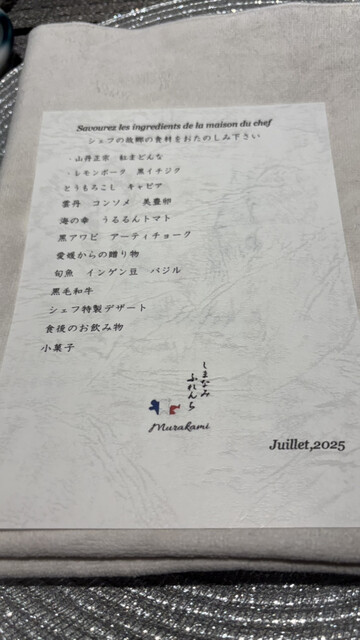 Savourez les ingredients de la maison du chef
シェフの故郷の食材をおたのしみ下さい
・山丹正宗 紅まどんな
・レモンポーク 黒イチジク
とうもろこし キャビア
雲丹 コンソメ 美豊卵
海の幸 うるるんトマト
黒アワビ アーティチョーク
愛媛からの贈り物
旬魚 インゲン豆 バジル
黒毛和牛
シェフ特製デザート
食後のお飲み物
小菓子
しまなみ
ふれんち
Murakami
Juillet,2025